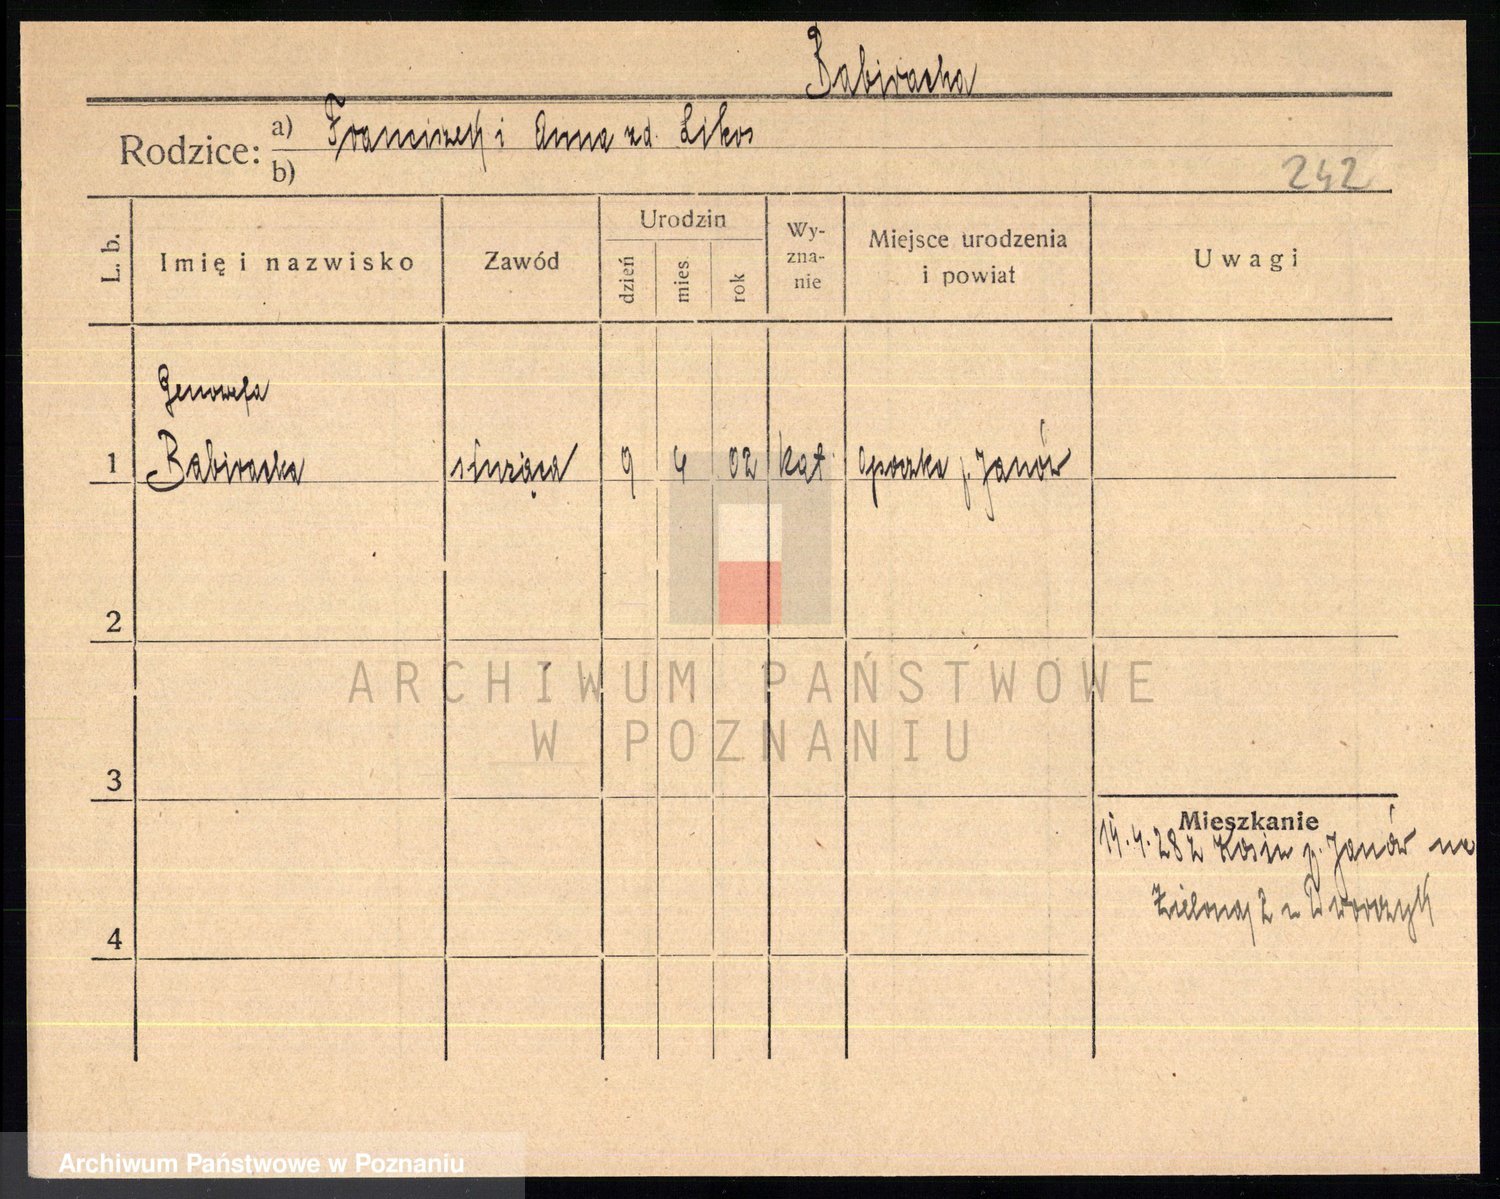 Babiracka
Rodzice:
a) Franciszek i Anna zd. Likos
b)
242
L. b.
Imię i nazwisko
Zawód
Urodzin
dzień
mies
rok
Wy-
zna-
nie
Miejsce urodzenia
i powiat
Uwagi
Genowefa
1 Babiracka służąca 9 4 02 kat. Opoczka p. Janów
2
ARCHIWUM PAŃSTWOWE
W POZNANIU
3
Mieszkanie
28 z Kosin p. Janów na
Zielonej 2 u Dworczyk
4
Archiwum Państwowe w Poznaniu